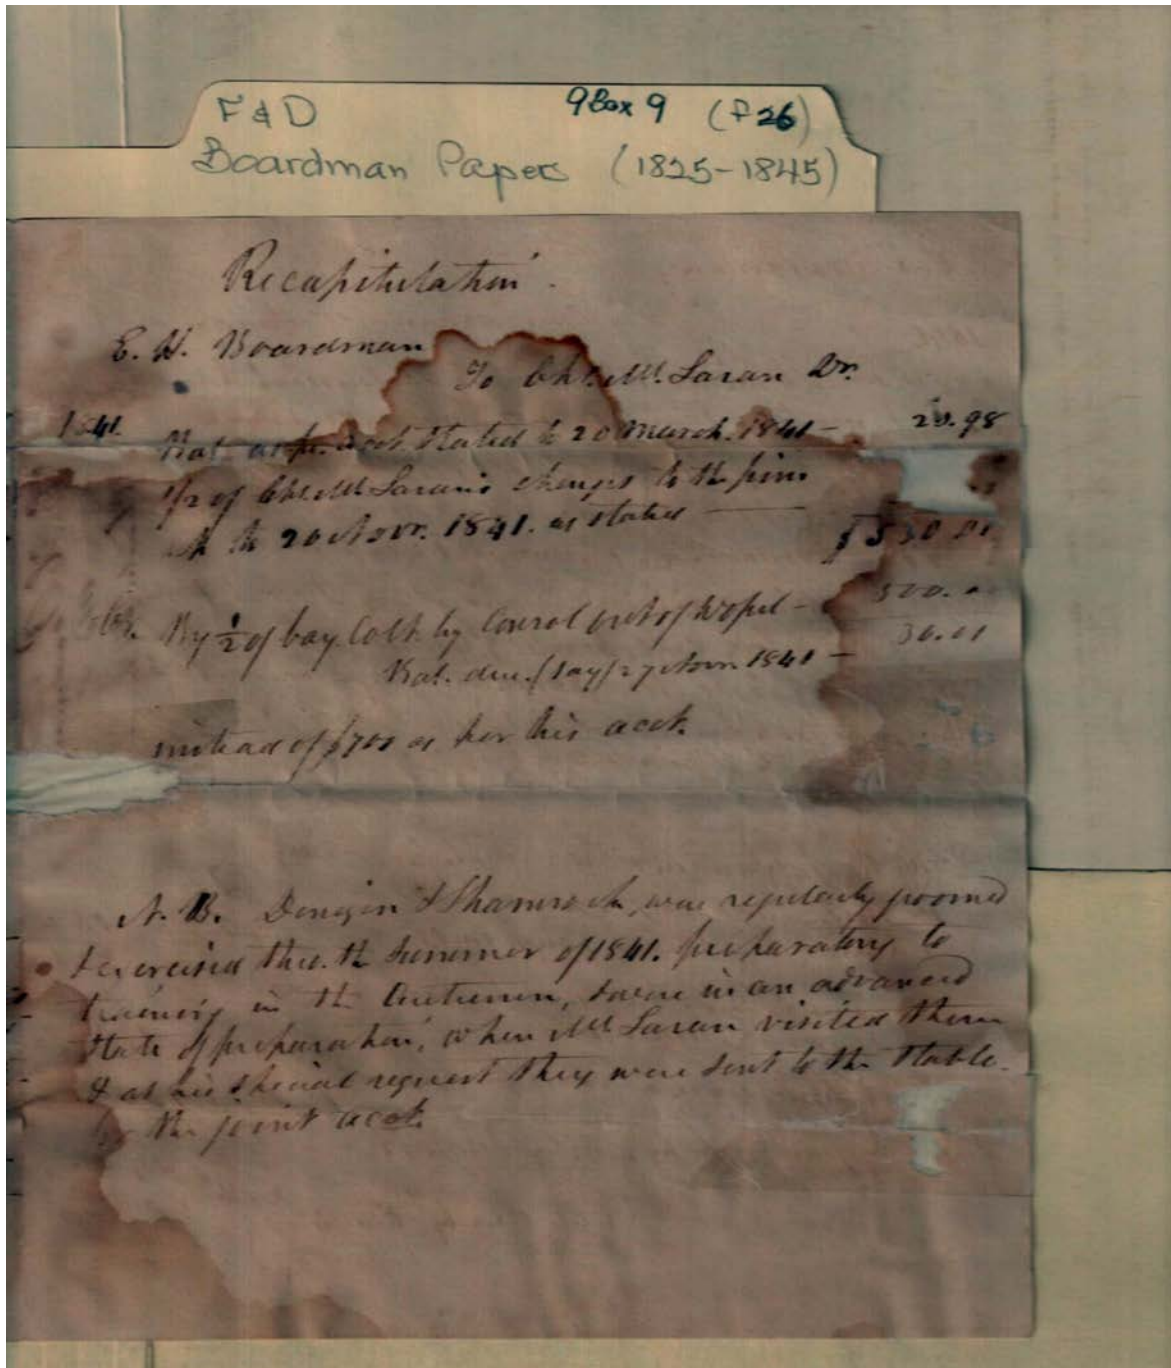 F & D 9 Box 9 (f 26)
Boardman Papers (1825-1845)
Recapitulation
E. H. Boardman
To Chs. McLaran Dr.
1841. Bal. as pr. acct. stated to 20 March. 1841 — 20.98
1/2 of Chs. McLaran's charges to the joint
to 20 Novr. 1841. as stated —
$530.
By 1/2 of bay Colt. by Consol out of — 500.
Bal. due (say) 27 Novr. 1841 — 30.
instead of $700 as per his acct.
N. B. & Shamrock, were regularly groomed
& exercised thro. the Summer of 1841. preparatory to
training in the Autumn, & were in an advanced
State of preparation, when McLaran visited them
& at his special request they were sent to the Stable.
the joint acct.